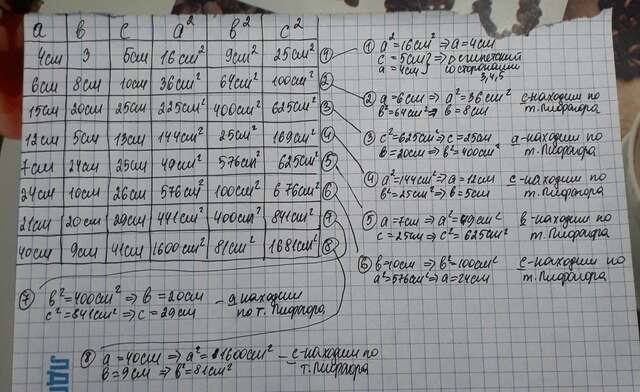 a b c a² b² c²
4см 3 5см 16см² 9см² 25см² ①
6см 8см 10см 36см² 64см² 100см² ②
15см 20см 25см 225см² 400см² 625см² ③
12см 5см 13см 144см² 25см² 169см² ④
7см 24см 25см 49см² 576см² 625см² ⑤
24см 10см 26см 576см² 100см² 676см² ⑥
21см 20см 29см 441см² 400см² 841см² ⑦
40см 9см 41см 1600см² 81см² 1681см² ⑧
① a²=16см² ⇒ a=4см
c=5см } ⇒ р египетский
a=4см со сторонами
3,4,5
② a=6см ⇒ a²=36см² c-находим по
b²=64см² ⇒ b=8см т. Пифагора
③ c²=625см² ⇒ c=25см a-находим по
b=20см ⇒ b²=400см² т. Пифагора
④ a²=144см² ⇒ a=12см c-находим по
b²=25см² ⇒ b=5см т. Пифагора
⑤ a=7см ⇒ a²=49см² b-находим по
c=25см ⇒ c²=625см² т. Пифагора
⑥ b=10см ⇒ b²=100см² c-находим по
a²=576см² ⇒ a=24см т. Пифагора
⑦ b²=400см² ⇒ b=20см - a находим
c²=841см² ⇒ c=29см по т. Пифагора
⑧ a=40см ⇒ a²=1600см² - c-находим по
b=9см ⇒ b²=81см² т. Пифагора